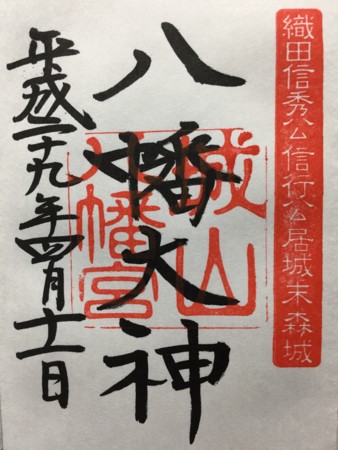 織田信秀公信行公居城末森城
八幡大神
城山
八幡宮
平成二十九年四月十一日